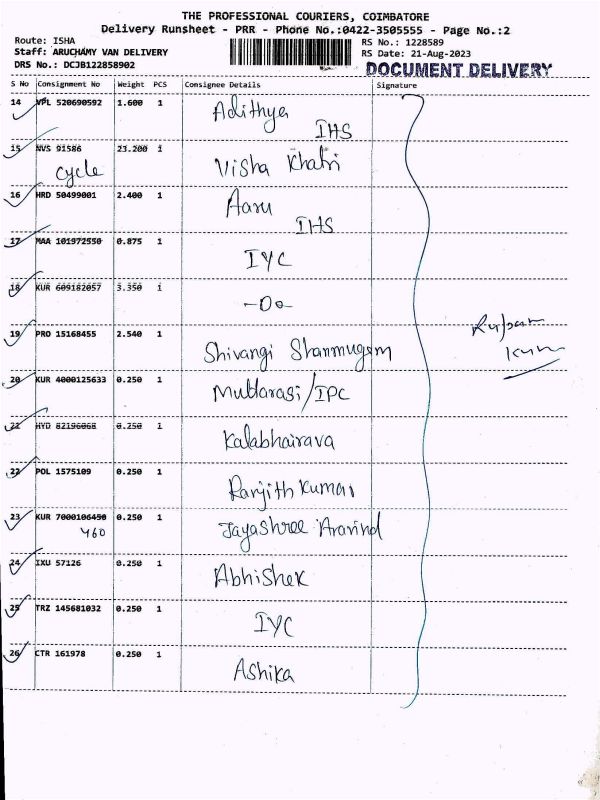 THE PROFESSIONAL COURIERS, COIMBATORE
Delivery Runsheet - PRR - Phone No.:0422-3505555 - Page No.:2
Route: ISHA RS No.: 1228589
Staff: ARUCHAMY VAN DELIVERY RS Date: 21-Aug-2023
DRS No.: DCJB122858902 DOCUMENT DELIVERY
S No Consignment No Weight PCS Consignee Details Signature
14 VPL 520690592 1.600 1 Adithya
IHS
15 NVS 91586 23.200 1
Cycle Visha Khatri
16 HRD 50499001 2.400 1 Aaru
IHS
17 MAA 101972550 0.875 1
IYC
18 KUR 609182057 3.350 1
-Do-
19 PRO 15168455 2.540 1
Shivangi Shanmugam
20 KUR 4000125633 0.250 1
Muttarasi/IPC
21 HYD 82196068 0.250 1
Kalabhairava
22 POL 1575109 0.250 1
Ranjith Kumar
23 KUR 7000106450 0.250 1 Jayashree Aravind
460
24 IXU 57126 0.250 1
Abhishek
25 TRZ 145681032 0.250 1
IYC
26 CTR 161978 0.250 1
Ashika